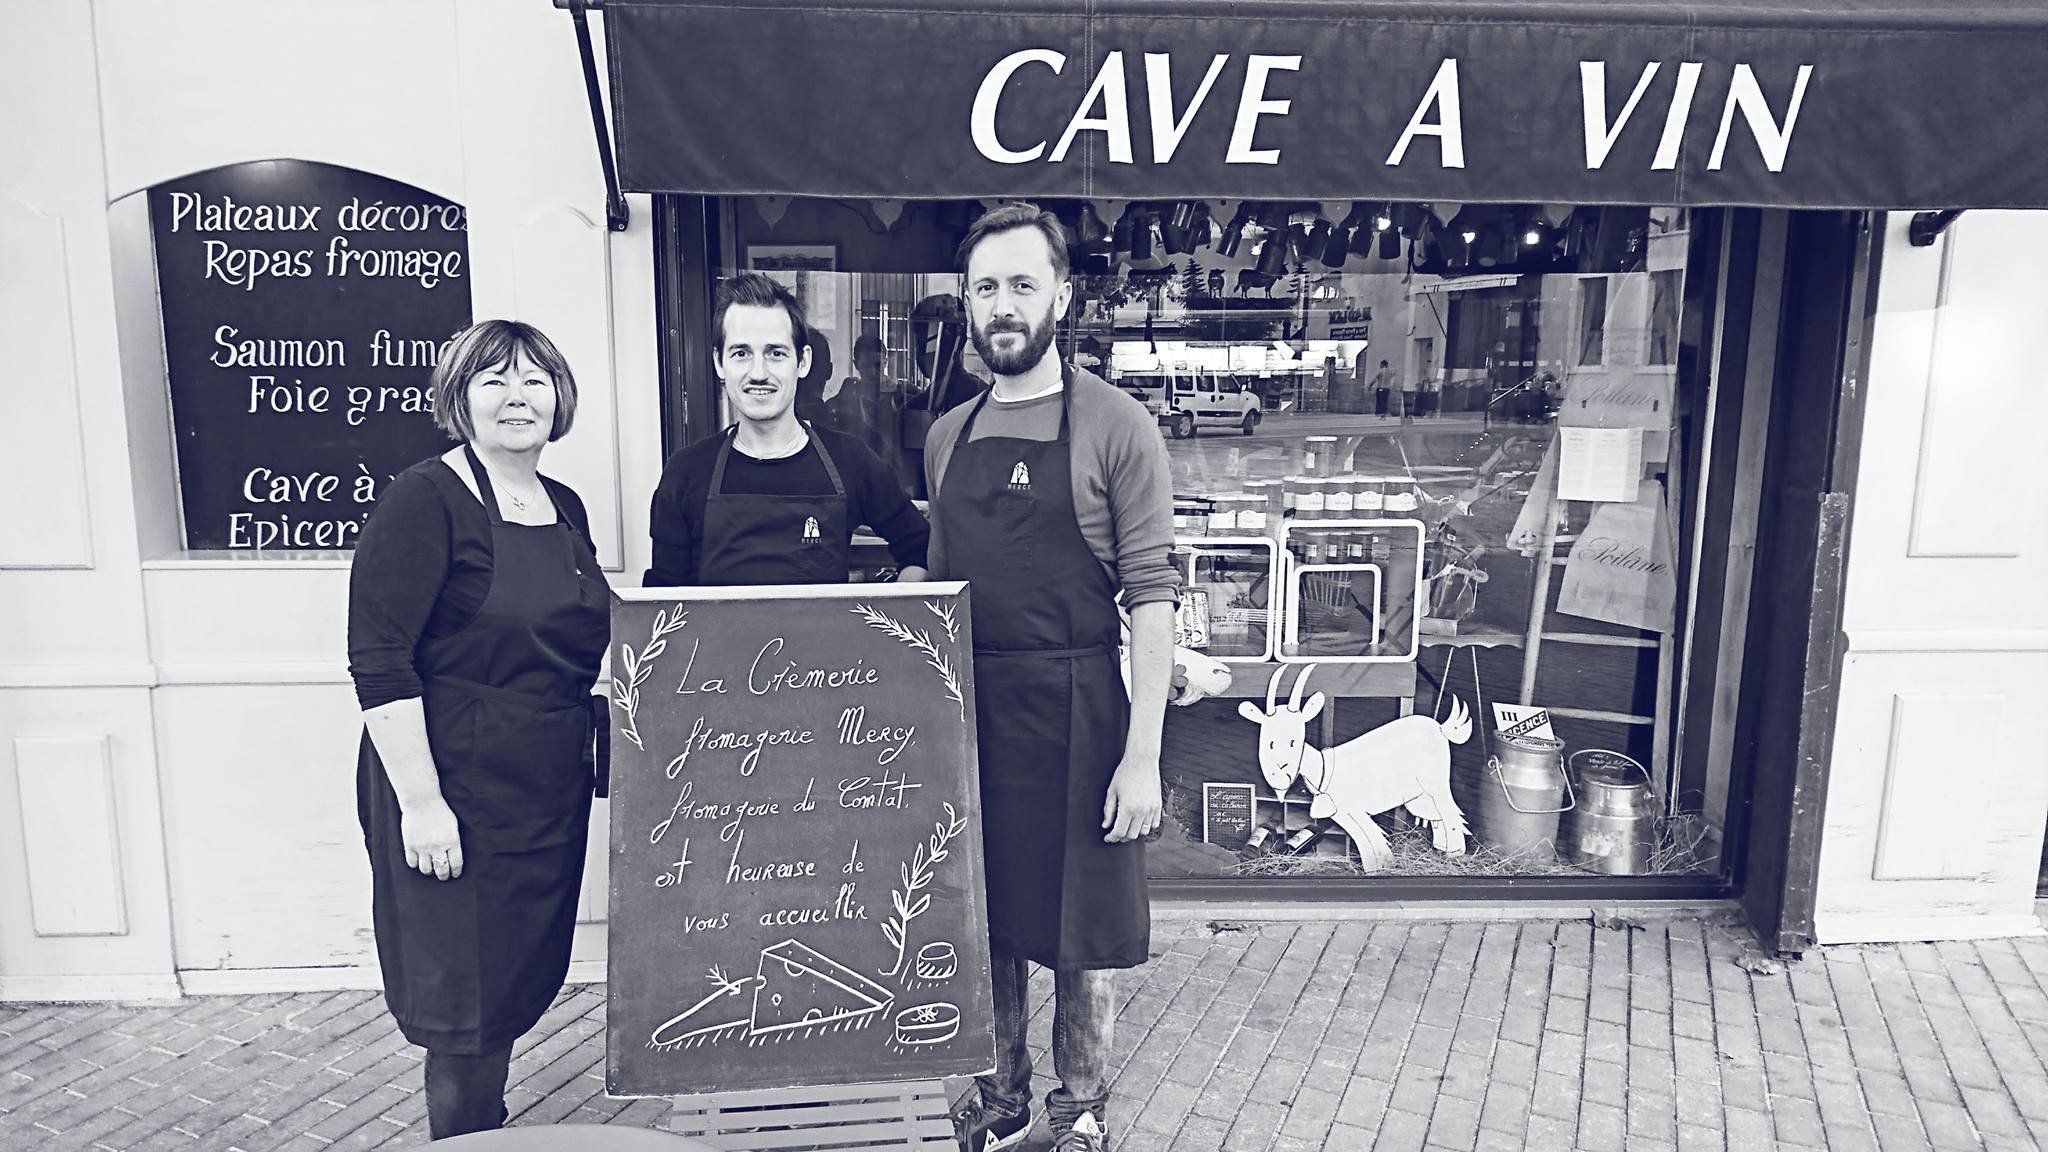 CAVE A VIN
Plateaux décores
Repas fromage
Saumon fumé
Foie gras
Cave à
Epiceri
MERCY
MERCY
La Crèmerie
fromagerie Mercy,
fromagerie du Comtat,
est heureuse de
vous accueillir
Poilâne
Poilâne
III